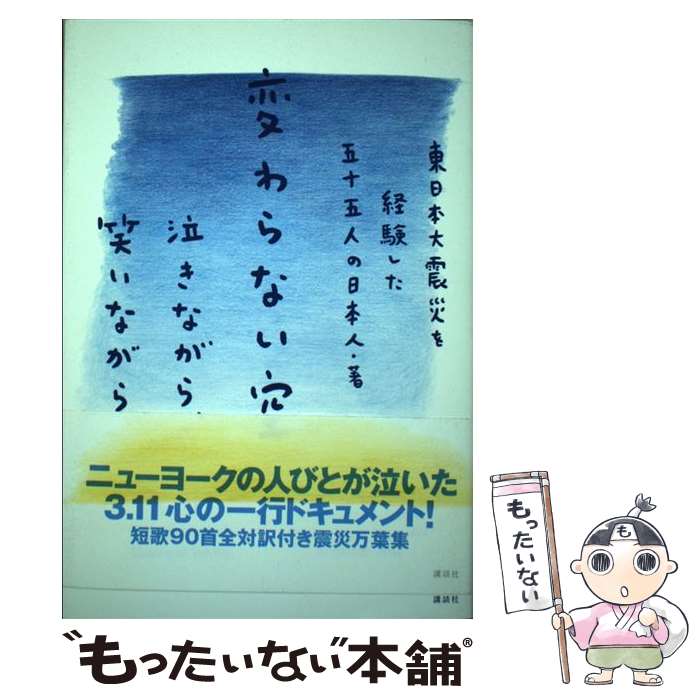 東日本大震災を
経験した
五十五人の日本人・著
変わらない空
泣きながら、
笑いながら
ニューヨークの人びとが泣いた
3.11 心の一行ドキュメント!
短歌90首全対訳付き震災万葉集
講談社
講談社
もったいない
も
"もったいない"本舗®